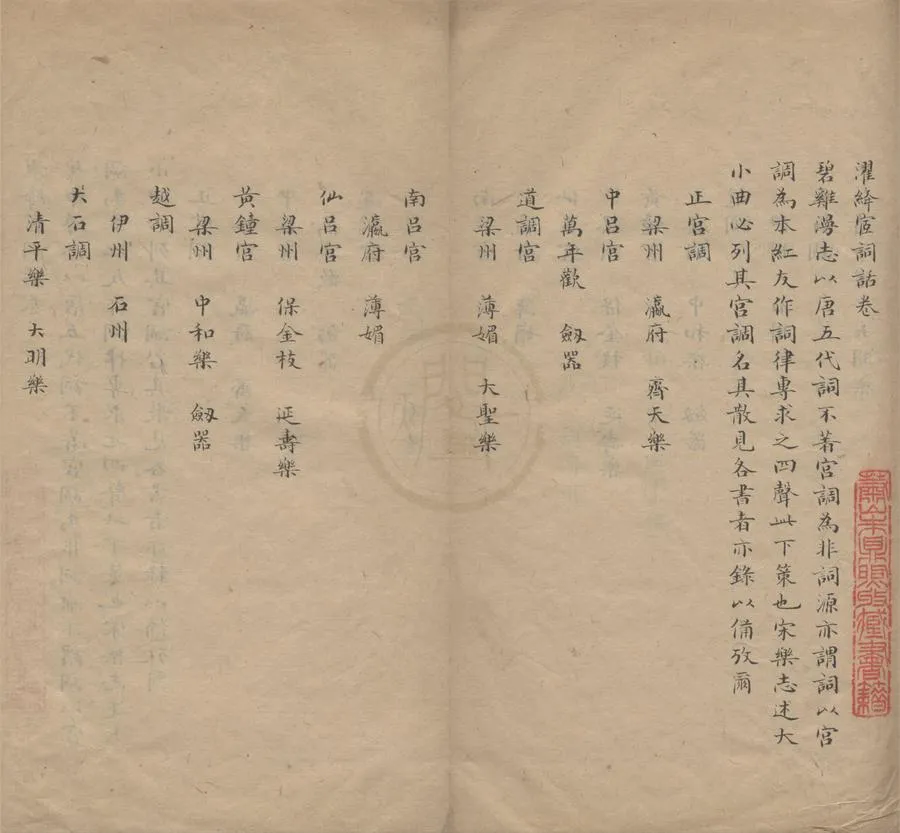 濯絳宧詞話卷
碧雞漫志以唐五代詞不著宮調為非詞源亦謂詞以宮
調為本紅友作詞律專求之四聲此下策也宋樂志述大
小曲必列其宮調名其散見各書者亦錄以備攷爾
正宮調
梁州　瀛府　齊天樂
中呂宮
萬年歡　劔器
道調宮
梁州　薄媚　大聖樂
南呂宮
瀛府　薄媚
仙呂宮
梁州　保金枝　延壽樂
黃鐘宮
梁州　中和樂　劔器
越調
伊州　石州
大石調
清平樂　大明樂
蕭山朱鼎煦收藏書籍